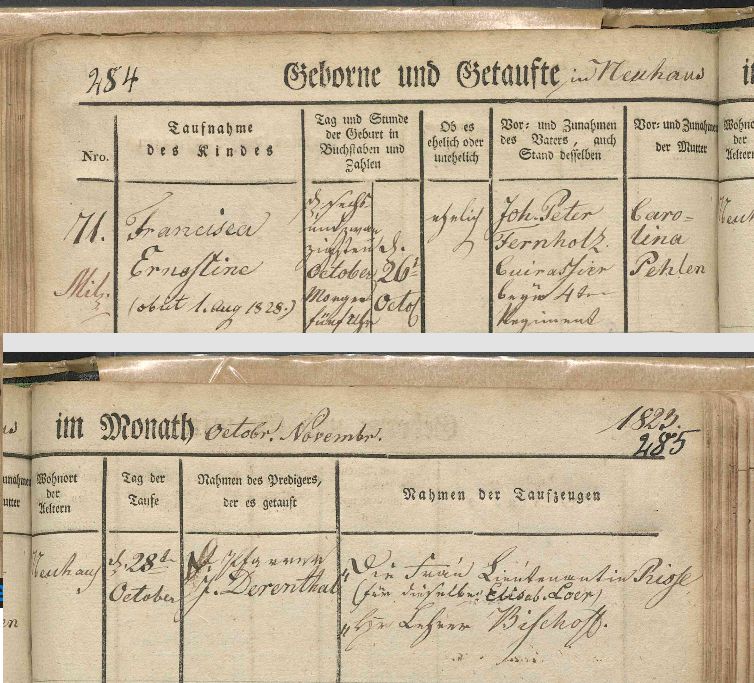 284
Geborne und Getaufte in Neuhaus
Nro.
Taufnahme
des Kindes
Tag und Stunde
der Geburt in
Buchstaben und
Zahlen
Ob es
ehelich oder
unehelich
Vor- und Zunahmen
des Vaters, auch
Stand desselben
Vor- und Zunahmen
der Mutter
Wohnort
der
Aeltern
71.
Mil.
Francisca
Ernestine
(obiit 1. Aug 1828.)
d. sechs
und zwan
zigsten
October
Morgen
fünf Uhr
d.
26t
Octob
ehelich
Joh. Peter
Fernholz.
Cuirassier
beym 4ten
Regiment
Caro-
lina
Pehlen
Neuh
im Monath Octobr. Novembr.
1823.
285
Wohnort
der
Aeltern
Tag der
Taufe
Nahmen des Predigers,
der es getauft
Nahmen der Taufzeugen
Neuhaus
d. 28te
October
Pfarrer
J. Derenthal
Die Frau Lieutenantin Riese
(für dieselbe Elisab. Loer)
Hr Lehrer Bischoff.